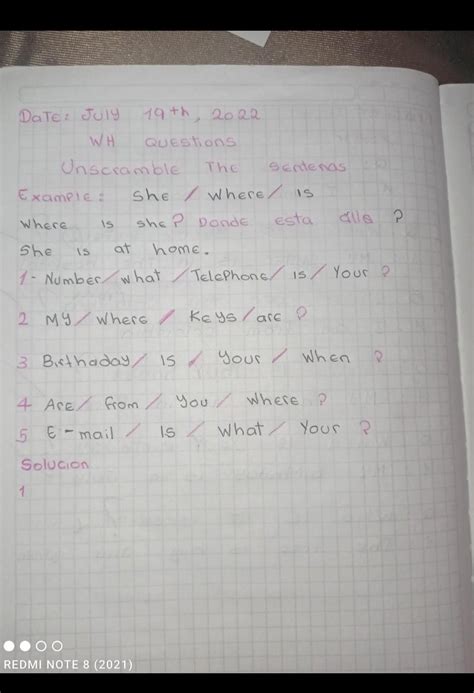 Date: July 19th, 2022
WH Questions
Unscramble The Sentenas
Example: she / where / is
Where is she? Donde esta alla ?
She is at home.
1- Number / what / Telephone / is / Your ?
2 My / where / Keys / are ?
3 Birthaday / is / Your / When ?
4 Are / from / You / Where ?
5 E-mail / Is / What / Your ?
Solucion
1
REDMI NOTE 8 (2021)